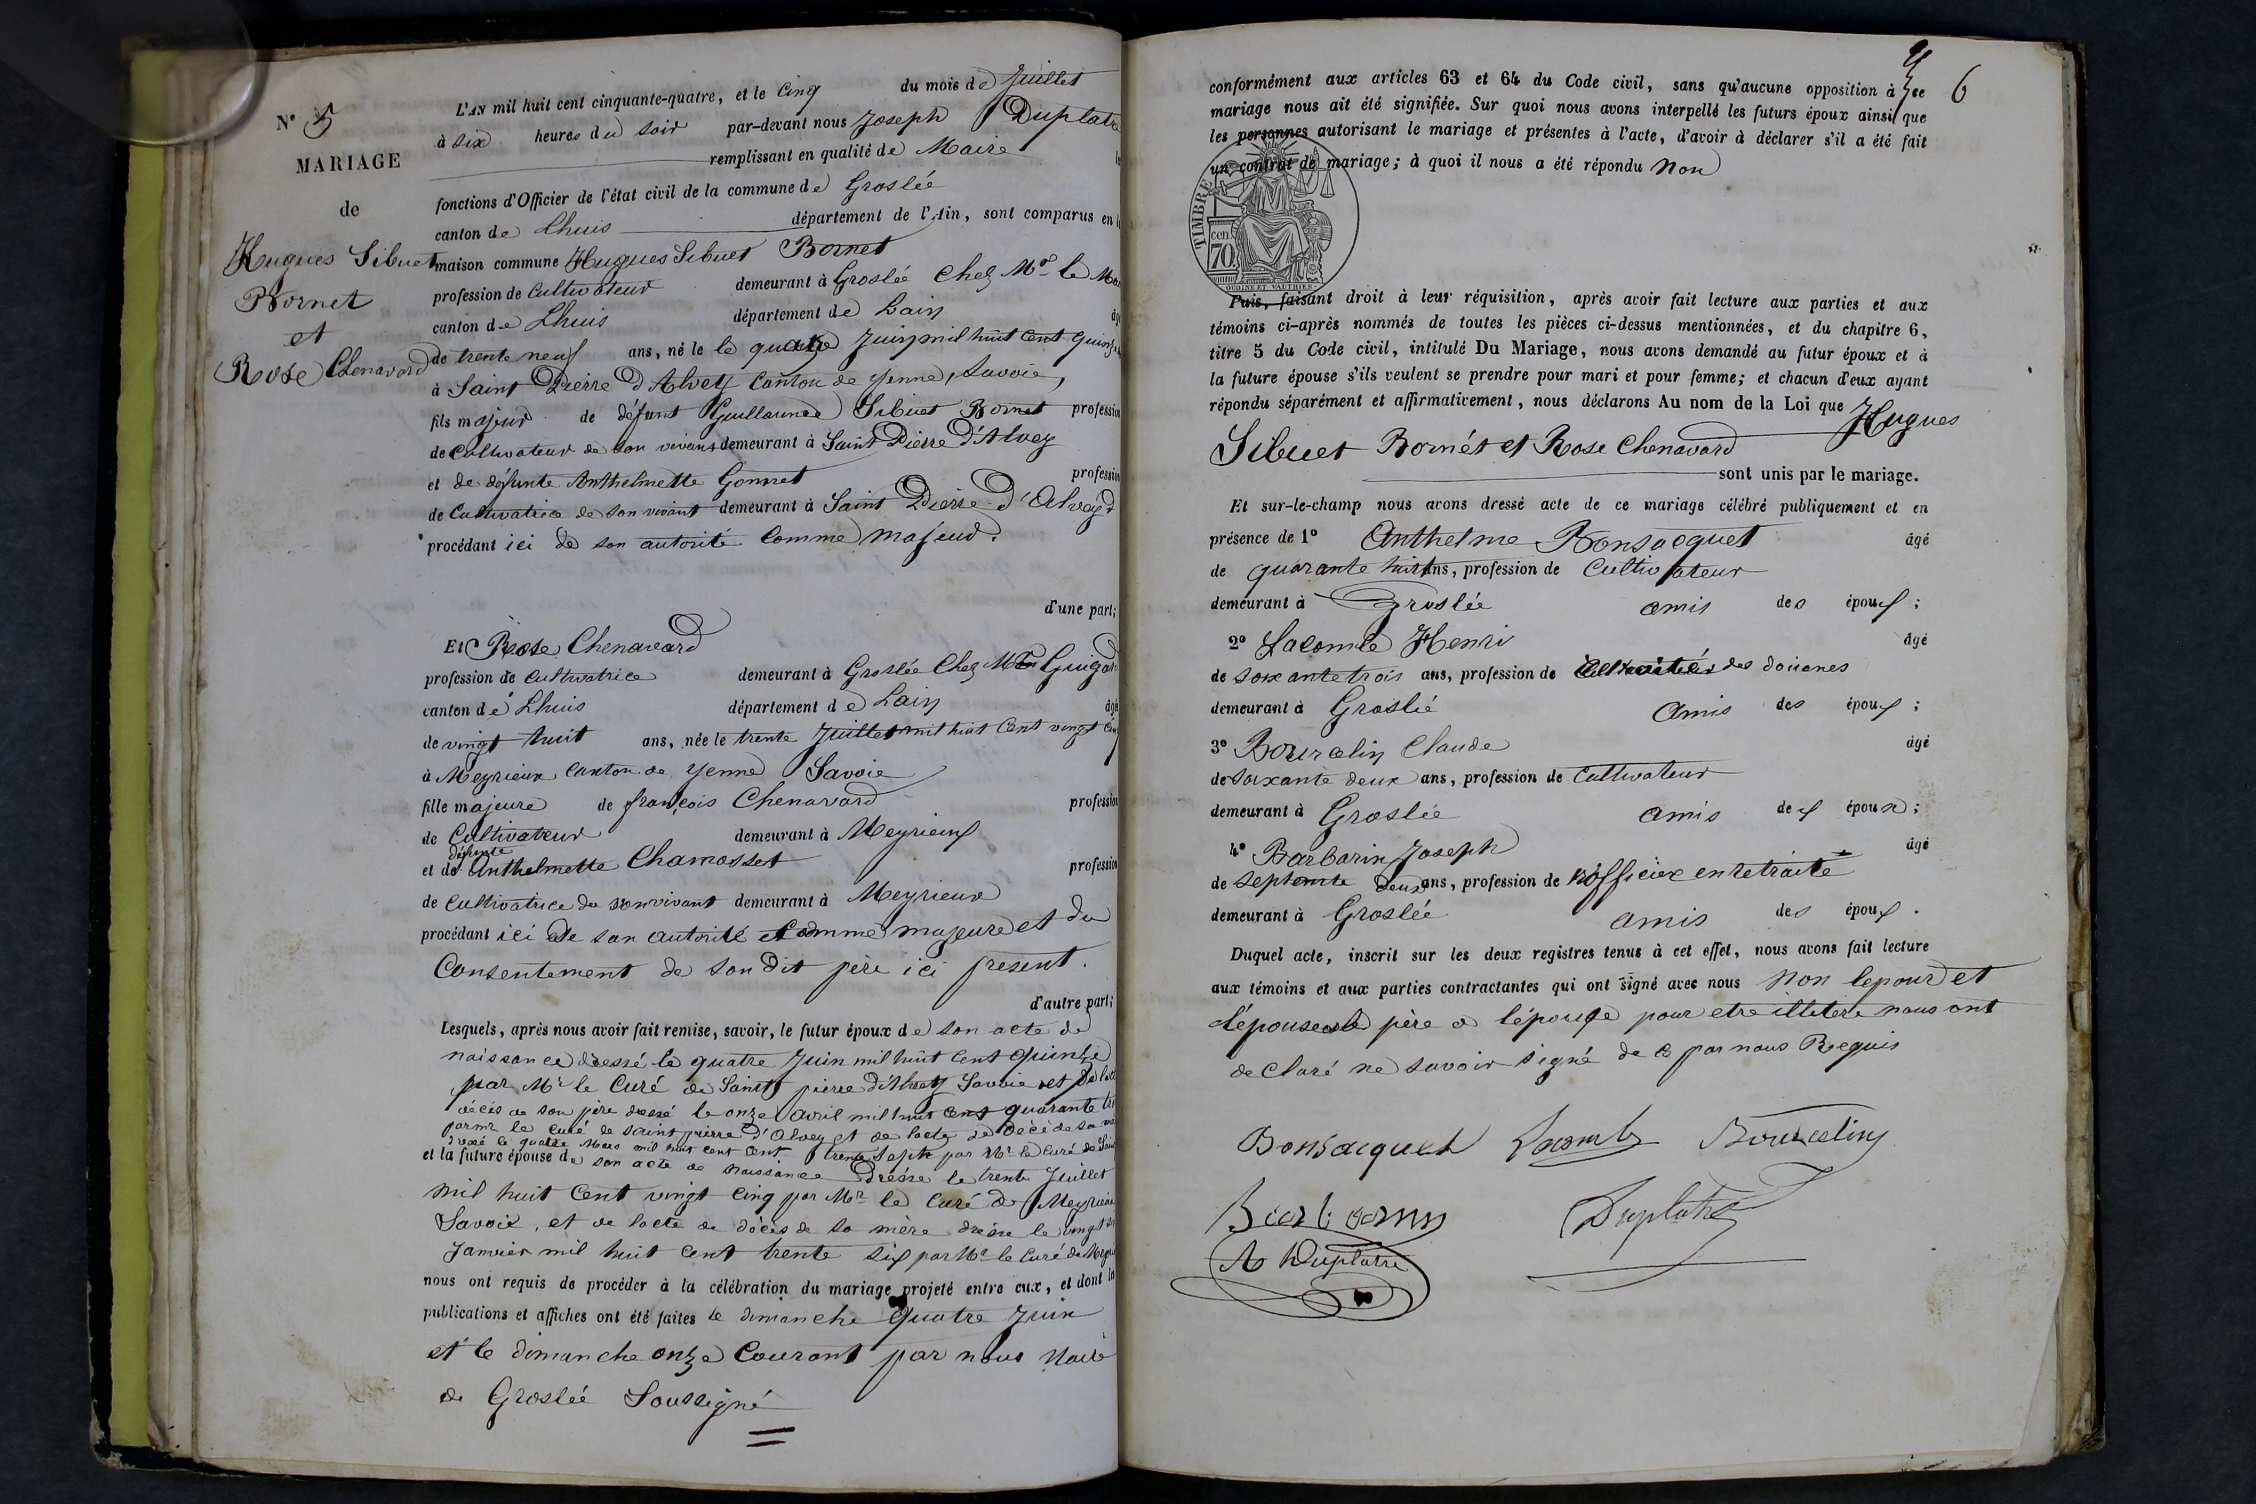 N° 5
MARIAGE
de
Hugues Sibuet
Bornet
et
Rose Chenavard
L'AN mil huit cent cinquante-quatre, et le Cinq du mois de Juillet
à six heures du soir par-devant nous Joseph Duplatre
remplissant en qualité de Maire
fonctions d'Officier de l'état civil de la commune de Groslée
canton de Lhuis département de l'Ain, sont comparus en
maison commune Hugues Sibuet Bornet
profession de cultivateur demeurant à Groslée Chez Mr le
canton de Lhuis département de Lain
de trente neuf ans, né le le quatre Juin mil huit cent
à Saint Pierre d'Alvey Canton de Yenne, Savoie,
fils majeur de défunt Guillaume Sibuet Bornet profession
de Cultivateur de son vivant demeurant à Saint Pierre d'Alvey
et de défunte Anthelmette Gonnet profession
de Cultivatrice de son vivant demeurant à Saint Pierre d'Alvey
procédant ici de son autorité Comme majeur.
d'une part;
Et Rose Chenavard
profession de cultivatrice demeurant à Groslée Chez
canton de Lhuis département de Lain
de vingt huit ans, née le trente Juillet mil huit cent vingt
à Meyrieux canton de Yenne Savoie
fille majeure de françois Chenavard profession
de Cultivateur demeurant à Meyrieux
défunte
et de Anthelmette Chamosset profession
de Cultivatrice de son vivant demeurant à Meyrieux
procédant ici de son autorité et comme majeure et du
Consentement de son dit père ici présent.
d'autre part;
Lesquels, après nous avoir fait remise, savoir, le futur époux de son acte de
naissance dressé le quatre Juin mil huit cent quinze
par Mr le Curé de Saint pierre d'Alvey Savoie et de
décès de son père dressé le onze avril mil huit cent quarante
par mr le curé de saint pierre d'Alvey et de lacte de décè de sa
dressé le quatre Mars mil huit cent cent trente Sept par Mr le Curé de
et la future épouse de son acte de naissance dressé le trente Juillet
mil huit cent vingt cinq par Mr le Curé de Meyrieux
Savoie, et de lacte de décès de sa mère dressé le vingt
Janvier mil huit cent trente six par Mr le Curé de
nous ont requis de procéder à la célébration du mariage projeté entre eux, et dont
publications et affiches ont été faites le dimanche quatre Juin
et le dimanche onze Courant par nous Maire
de Groslée Soussigné
6
conformément aux articles 63 et 64 du Code civil, sans qu'aucune opposition à ce
mariage nous ait été signifiée. Sur quoi nous avons interpellé les futurs époux ainsi que
les personnes autorisant le mariage et présentes à l'acte, d'avoir à déclarer s'il a été fait
un contrat de mariage; à quoi il nous a été répondu Non
TIMBRE
cen
70
Puis, faisant droit à leur réquisition, après avoir fait lecture aux parties et aux
témoins ci-après nommés de toutes les pièces ci-dessus mentionnées, et du chapitre 6,
titre 5 du Code civil, intitulé Du Mariage, nous avons demandé au futur époux et à
la future épouse s'ils veulent se prendre pour mari et pour femme; et chacun d'eux ayant
répondu séparément et affirmativement, nous déclarons Au nom de la Loi que Hugues
Sibuet Bornet et Rose Chenavard
sont unis par le mariage.
Et sur-le-champ nous avons dressé acte de ce mariage célébré publiquement et en
présence de 1° Anthelme Bonsacquet âgé
de quarante huit ans, profession de Cultivateur
demeurant à Groslée amis des époux;
2° Lacombe Henri âgé
de soixante trois ans, profession de des douanes
demeurant à Groslée amis des époux;
3° Bourcelin Claude âgé
de soixante deux ans, profession de cultivateur
demeurant à Groslée amis des époux;
4° Barbarin Joseph âgé
de septante deux ans, profession de officier en retraite
demeurant à Groslée amis des époux.
Duquel acte, inscrit sur les deux registres tenus à cet effet, nous avons fait lecture
aux témoins et aux parties contractantes qui ont signé avec nous non lepoux et
père de l'épouse pour etre nous ont
declaré ne savoir signé de ce par nous Requis
Bonsacquet Lacombe Bourcelin
Barbarin Duplatre
Duplatre